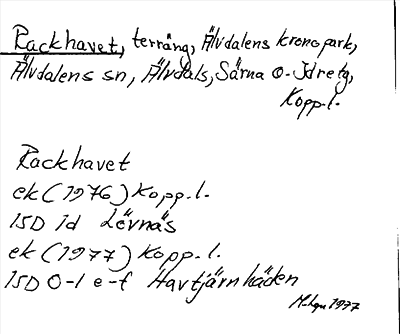 Rackhavet, terräng, Älvdalens kronopark,
Älvdalens sn, Älvdals, Särna o. Idre tg,
Kopp.l.
Rackhavet
ek (1976) Kopp.l.
15D 1d Lövnäs
ek (1977) Kopp.l.
15D 0-1 e-f Havtjärnhäden
1977